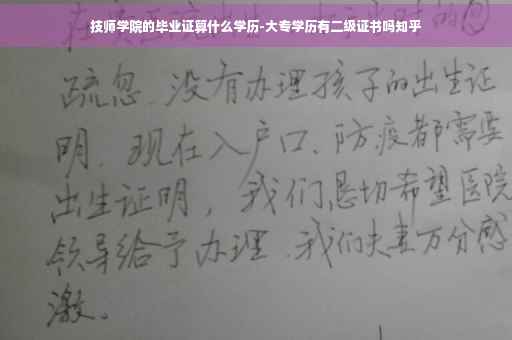 技师学院的毕业证算什么学历-大专学历有二级证书吗知乎
疏忽.没有办理孩子的出生证
明.现在入户口、防疫都需要
出生证明，我们恳切希望医院
领导给予办理.我们夫妻万分感
激。